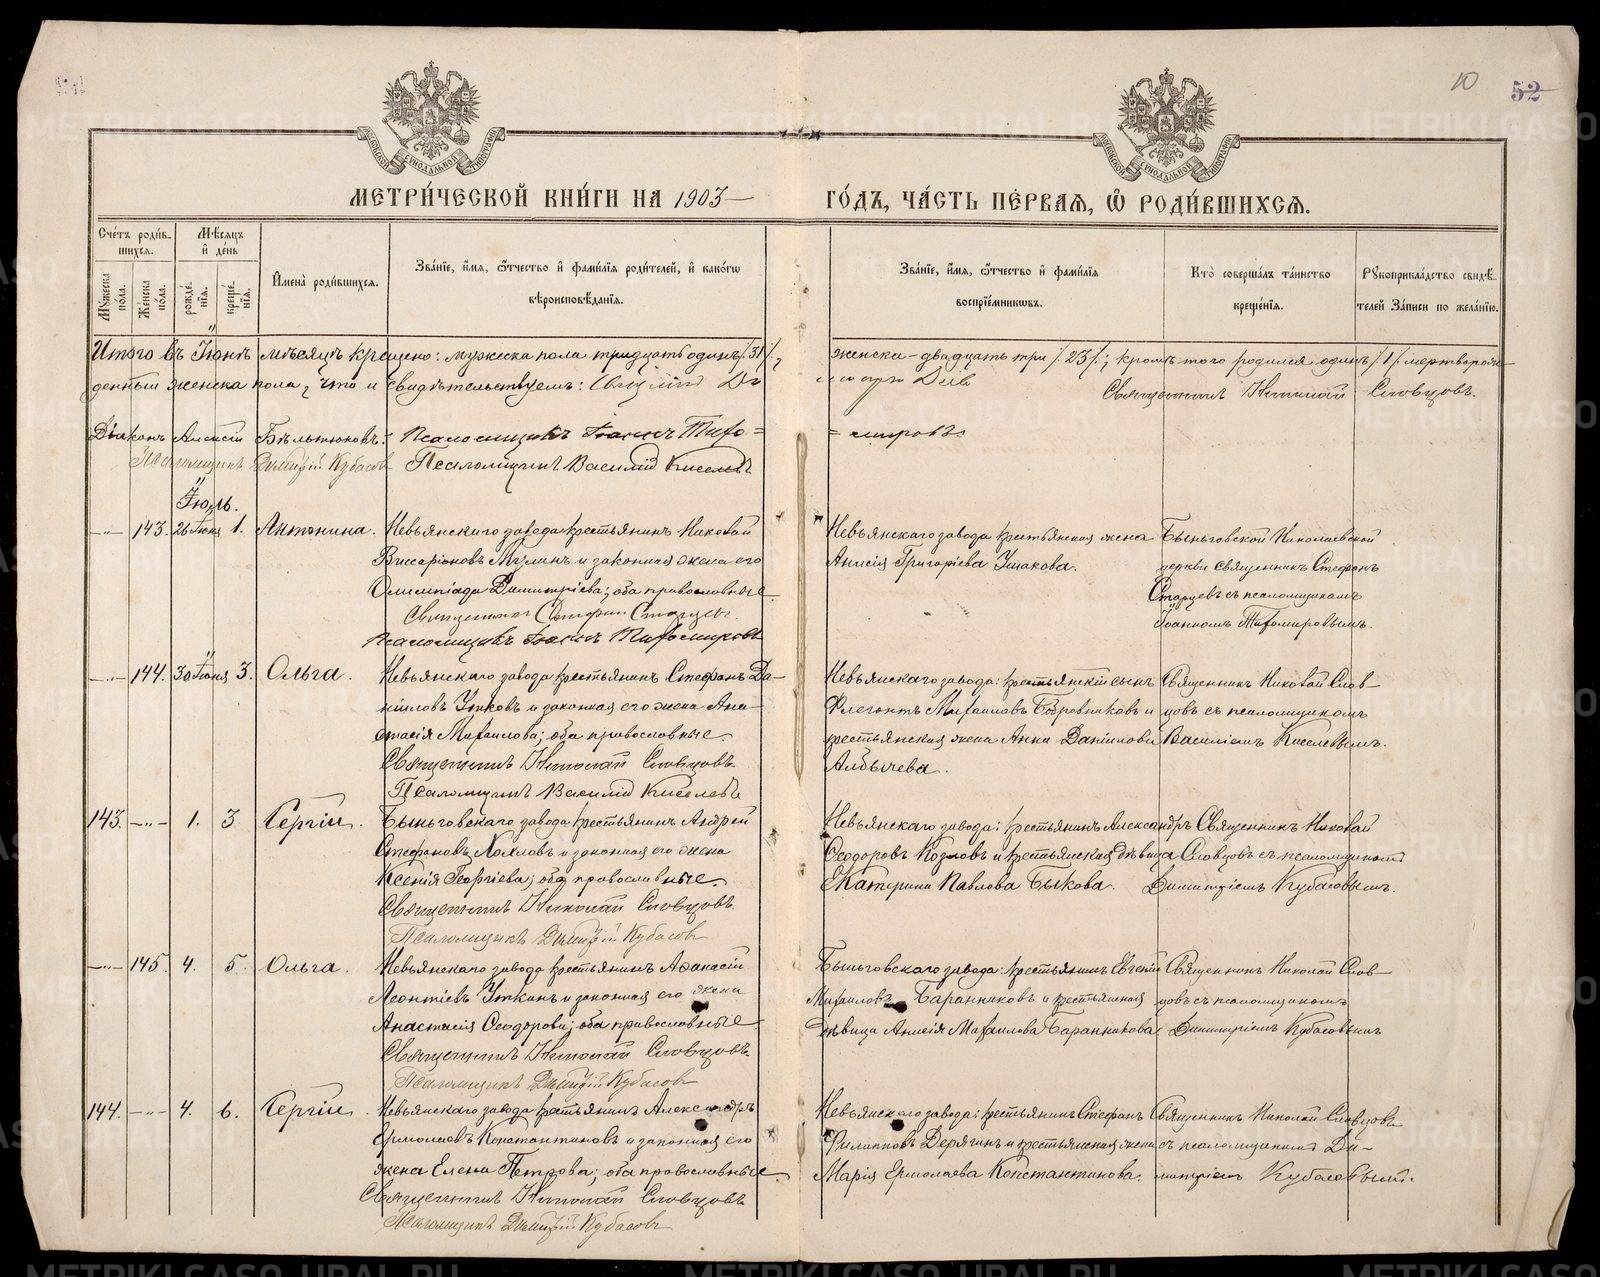 10
52
МЕТРИ́ЧЕСКОЙ КНИ́ГИ НА 1903 ГО́ДЪ, ЧА́СТЬ ПЕ́РВАЯ, Ѡ РОДИ́ВШИХСЯ.
Сче́тъ роди́в-
шихся.
Мѣ́сяцъ
и де́нь
Му́жеска по́ла.
Же́нска по́ла.
рожде́-
нїя.
креще́-
нїя.
И́мена роди́вшихся.
Зва́нїе, и́мя, ѻ́тчество и фами́лїя роди́телей, и како́гѡ
вѣроисповѣ́данїя.
Зва́нїе, и́мя, ѻ́тчество и фами́лїя
воспрїе́мниковъ.
Кто̀ соверша́лъ та́инство
креще́нїя.
Рукоприкла́дство свидѣ́-
телей за́писи по жела́нїю.
Итого въ Іюнѣ мѣсяцѣ крещено: мужеска пола тридцать одинъ /31/, женска – двадцать три /23/; кромѣ того родился одинъ /1/ мертворож-
денный женска пола, что и свидѣтельствуемъ:
Священникъ Николай Словцовъ.
Діаконъ Алексій Бѣльтюковъ. Псаломщикъ Іоаннъ Тихо=
=мировъ.
Псаломщикъ Димитрій Кубасовъ Псаломщикъ Василій Киселевъ
Іюль.
143. 26 Іюня 1. Антонина.
Невьянскаго завода крестьянинъ Николай
Виссаріоновъ Мулинъ и законная жена его
Олимпіада Димитріева; оба православные.
Священникъ Стефанъ Старцевъ.
Псаломщикъ Іоаннъ Тихомировъ
Невьянскаго завода крестьянская жена
Анисія Григоріева Ушакова.
Быньговской Николаевской
церкви священникъ Стефанъ
Старцевъ съ псаломщикомъ
Іоанномъ Тихомировымъ.
144. 30 Іюня 3. Ольга.
Невьянскаго завода крестьянинъ Стефанъ Да-
ніиловъ Утковъ и законная его жена Ана-
стасія Михаилова; оба православные.
Священникъ Николай Словцовъ.
Псаломщикъ Василій Киселевъ
Невьянскаго завода: крестьянскій сынъ
Флегонтъ Михаиловъ Бобровниковъ и
крестьянская жена Анна Даніилова
Албычева.
Священникъ Николай Слов-
цовъ съ псаломщикомъ
Василіемъ Киселевымъ.
143. 1. 3. Сергій.
Быньговскаго завода крестьянинъ Андрей
Стефановъ Лохловъ и законная его жена
Ксенія Георгіева; оба православные.
Священникъ Николай Словцовъ.
Псаломщикъ Димитрій Кубасовъ
Невьянскаго завода: крестьянинъ Александръ
Ѳеодоровъ Козловъ и крестьянская дѣвица
Екатерина Павлова Быкова.
Священникъ Николай
Словцовъ съ псаломщикомъ
Димитріемъ Кубасовымъ.
145. 4. 5. Ольга.
Невьянскаго завода крестьянинъ Аѳанасій
Леонтіевъ Уткинъ и законная его жена
Анастасія Ѳеодорова; оба православные.
Священникъ Николай Словцовъ
Псаломщикъ Димитрій Кубасовъ
Быньговскаго завода: крестьянинъ Евгеній
Михаиловъ Баранниковъ и крестьянская
дѣвица Михаилова Баранникова
Священникъ Николай Слов-
цовъ съ псаломщикомъ
Димитріемъ Кубасовымъ
144. 4. 6. Сергій.
Невьянскаго завода крестьянинъ Александръ
Ермолаевъ Константиновъ и законная его
жена Елена Петрова; оба православные.
Священникъ Николай Словцовъ
Псаломщикъ Димитрій Кубасовъ
Невьянскаго завода: крестьянинъ Стефанъ
Филипповъ Дерягинъ и крестьянская жена
Марія Ермолаева Константинова.
Священникъ Николай Словцовъ
съ псаломщикомъ Ди-
митріемъ Кубасовымъ.
METRIKI.GASO-URAL.RU